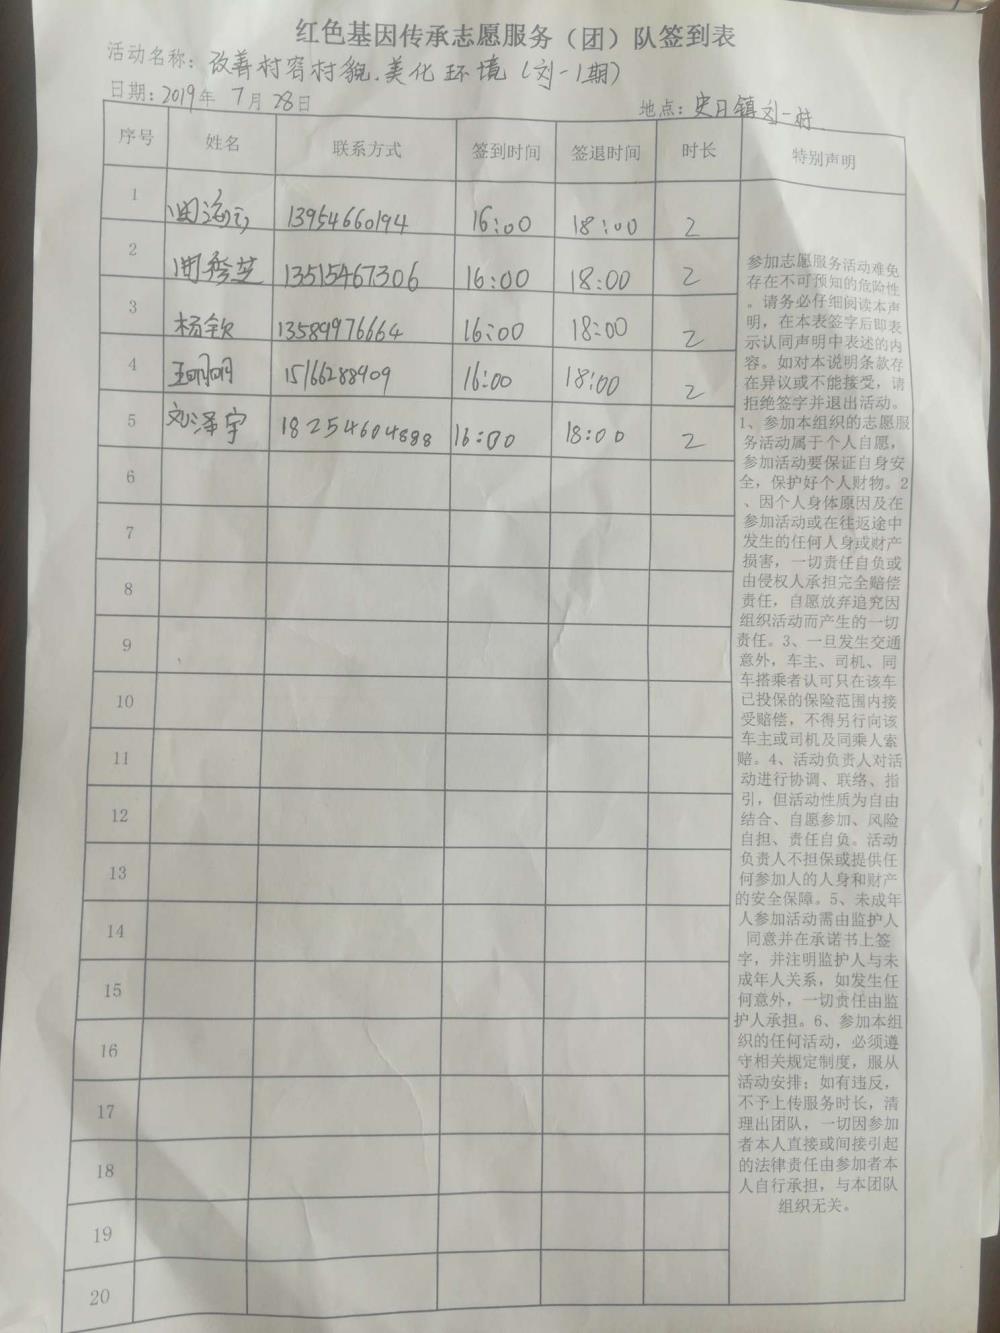 红色基因传承志愿服务（团）队签到表
活动名称：改善村容村貌.美化环境（刘一1期）
日期：2019年 7月 28日
地点：史口镇刘一村.
序号 姓名 联系方式 签到时间 签退时间 时长 特别声明
1 13954660194 16:00 18:00 2
2 13515467306 16:00 18:00 2
3 杨钦 13589976664 16:00 18:00 2
4 王明明 15166288909 16:00 18:00 2
5 刘泽宇 18254604888 16:00 18:00 2
6
7
8
9
10
11
12
13
14
15
16
17
18
19
20
参加志愿服务活动难免
存在不可预知的危险性
。请务必仔细阅读本声
明，在本表签字后即表
示认同声明中表述的内
容。如对本说明条款存
在异议或不能接受，请
拒绝签字并退出活动。
1、参加本组织的志愿服
务活动属于个人自愿，
参加活动要保证自身安
全，保护好个人财物。2
、因个人身体原因及在
参加活动或在往返途中
发生的任何人身或财产
损害，一切责任自负或
由侵权人承担完全赔偿
责任，自愿放弃追究因
组织活动而产生的一切
责任。3、一旦发生交通
意外，车主、司机、同
车搭乘者认可只在该车
已投保的保险范围内接
受赔偿，不得另行向该
车主或司机及同乘人索
赔。4、活动负责人对活
动进行协调、联络、指
引，但活动性质为自由
结合、自愿参加、风险
自担、责任自负。活动
负责人不担保或提供任
何参加人的人身和财产
的安全保障。5、未成年
人参加活动需由监护人
同意并在承诺书上签
字，并注明监护人与未
成年人关系，如发生任
何意外，一切责任由监
护人承担。6、参加本组
织的任何活动，必须遵
守相关规定制度，服从
活动安排；如有违反，
不予上传服务时长，清
理出团队，一切因参加
者本人直接或间接引起
的法律责任由参加者本
人自行承担，与本团队
组织无关。